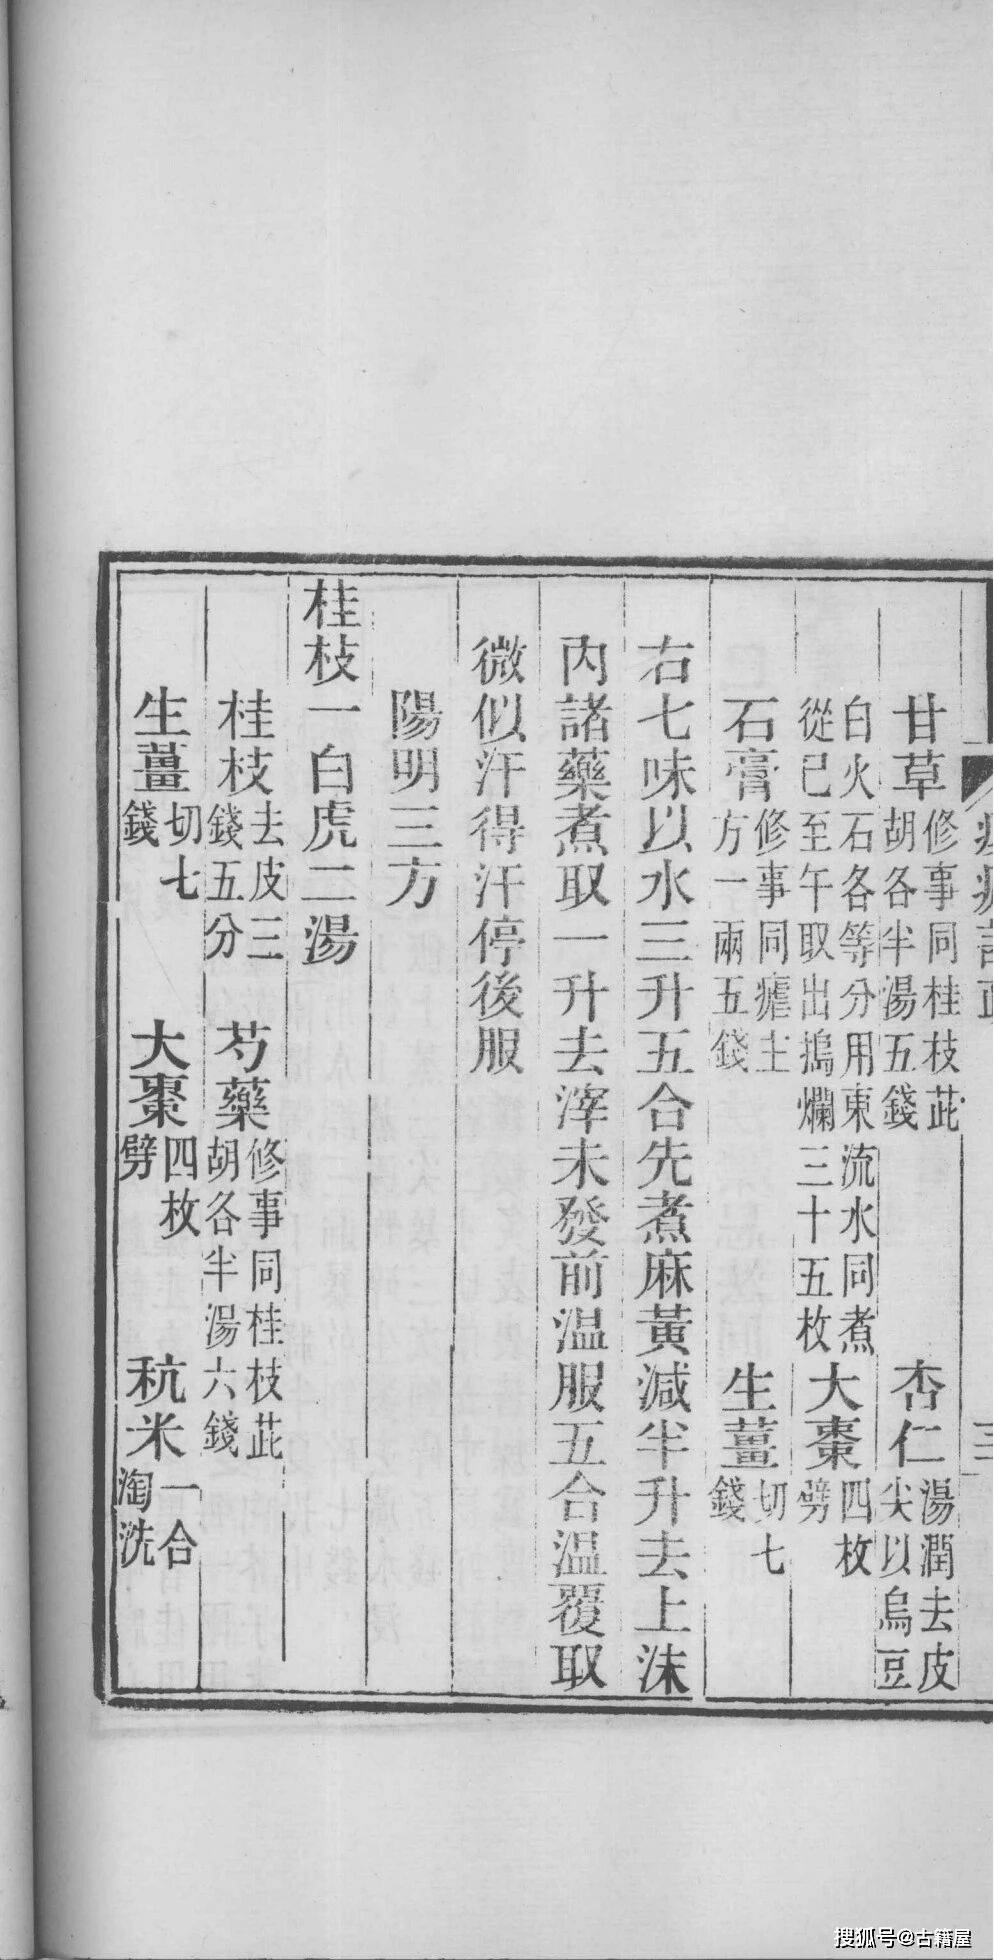 甘草修事同桂枝茈胡各半湯五錢 杏仁湯潤去皮尖以烏豆
白火石各等分用東流水同煮從巳至午取出搗爛三十五枚 大棗四枚劈
石膏修事同瘧主方一兩五錢 生薑切七錢
右七味以水三升五合先煮麻黃減半升去上沫
內諸藥煮取一升去滓未發前温服五合温覆取
微似汗得汗停後服
陽明三方
桂枝一白虎二湯
桂枝去皮三錢五分 芍藥修事同桂枝茈胡各半湯六錢
生薑切七錢 大棗四枚劈 秔米一合淘洗
搜狐号@古籍屋